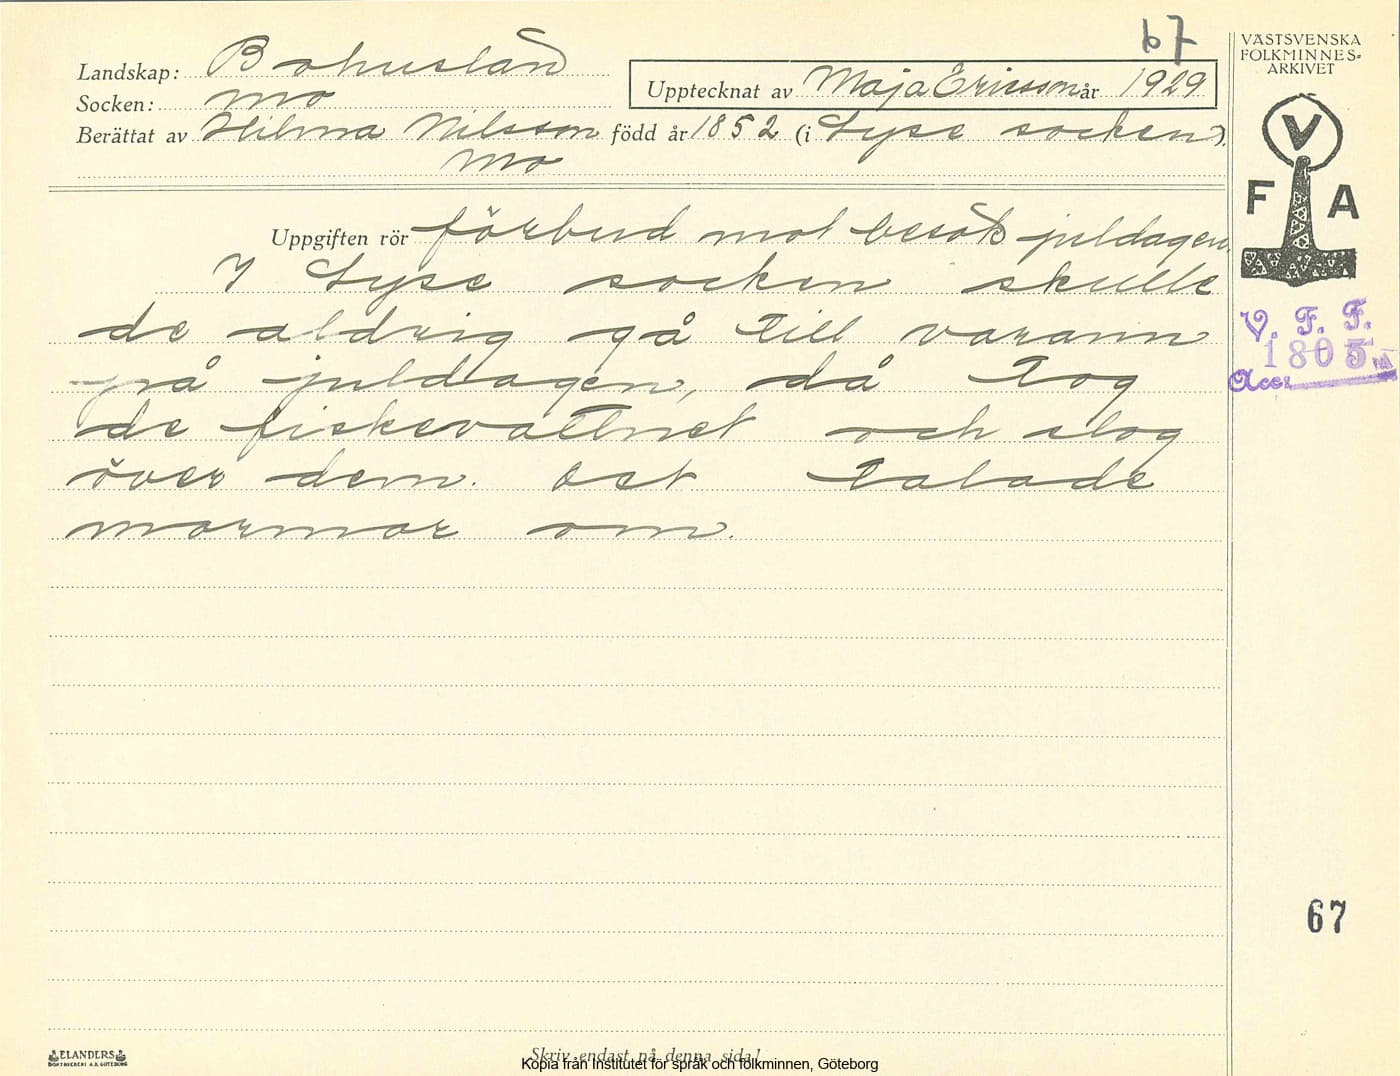 67
VÄSTSVENSKA
FOLKMINNES=
ARKIVET
Landskap: Bohuslän
Upptecknat av Maja Ericsson år 1929
Socken: Mo
Berättat av Hilma Nilsson född år 1852 (i Lyse socken).
Mo
V
F A
Uppgiften rör förbud mot besök juldagen.
I Lyse socken skulle
de aldrig gå till varann
på juldagen, då tog
de fiskevattnet och slog
över dem. Det talade
mormor om.
V. F. F.
1805
Acc:
67
ELANDERS
BOKTRYCKERI A.B. GÖTEBORG
Skriv endast på denna sida!
Kopia från Institutet för språk och folkminnen, Göteborg